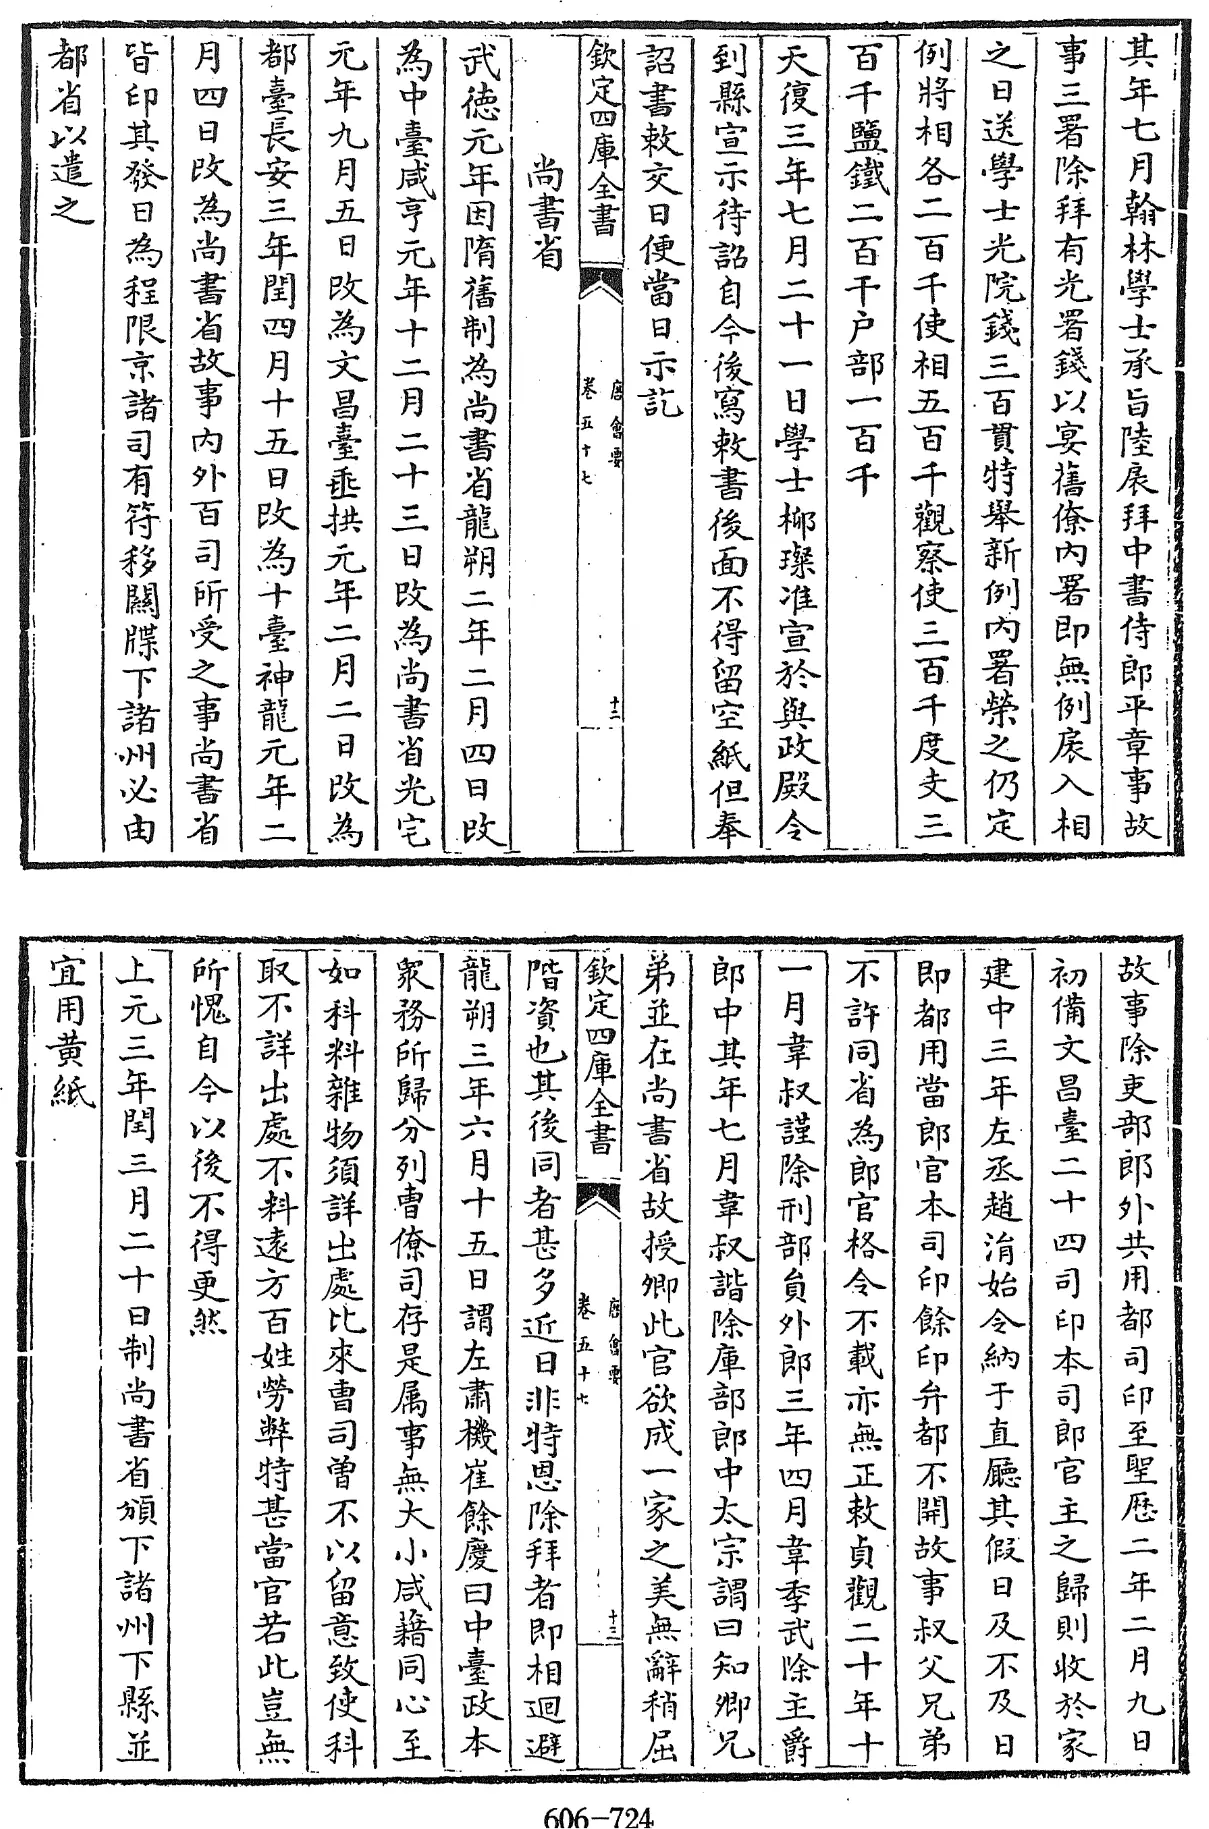 其年七月翰林學士承旨陸扆拜中書侍郎平章事故
事三署除拜有光署錢以宴舊僚內署即無例扆入相
之日送學士光院錢三百貫特舉新例內署榮之仍定
例將相各二百千使相五百千觀察使三百千度支三
百千鹽鐵二百千户部一百千
天復三年七月二十一日學士柳璨准宣於興政殿令
到縣宣示待詔自今後寫敕書後面不得留空紙但奉
詔書敕交日便當日示訖
欽定四庫全書
唐會要
卷五十七
十二
尚書省
武德元年因隋舊制為尚書省龍朔二年二月四日改
為中臺咸亨元年十二月二十三日改為尚書省光宅
元年九月五日改為文昌臺垂拱元年二月二日改為
都臺長安三年閏四月十五日改為十臺神龍元年二
月四日改為尚書省故事內外百司所受之事尚書省
皆印其發日為程限京諸司有符移關牒下諸州必由
都省以遣之
故事除吏部郎外共用都司印至聖歷二年二月九日
初備文昌臺二十四司印本司郎官主之歸則收於家
建中三年左丞趙涓始令納于直廳其假日及不及日
即都用當郎官本司印餘印弁都不開故事叔父兄弟
不許同省為郎官格令不載亦無正敕貞觀二十年十
一月韋叔謹除刑部員外郎三年四月韋季武除主爵
郎中其年七月韋叔諧除庫部郎中太宗謂曰知卿兄
弟並在尚書省故授卿此官欲成一家之美無辭稍屈
欽定四庫全書
唐會要
卷五十七
十三
階資也其後同者甚多近日非特恩除拜者即相迴避
龍朔三年六月十五日謂左肅機崔餘慶曰中臺政本
衆務所歸分列曹僚司存是属事無大小咸藉同心至
如科料雜物須詳出處比來曹司曾不以留意致使科
取不詳出處不料遠方百姓勞弊特甚當官若此豈無
所愧自今以後不得更然
上元三年閏三月二十日制尚書省頒下諸州下縣並
宜用黄紙
606-724